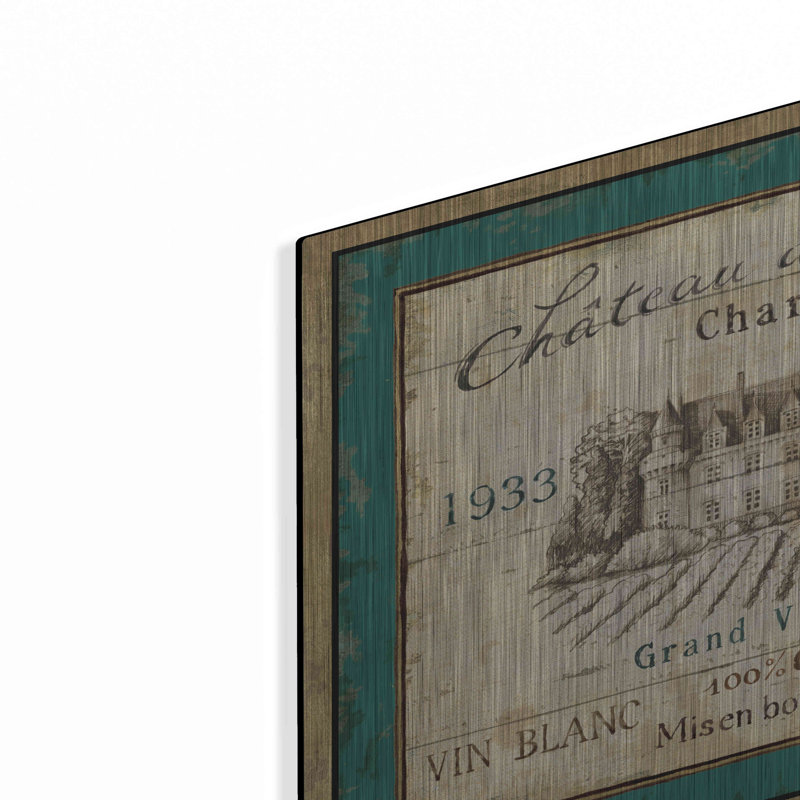 Château
Char
1933
Grand V
100%
VIN BLANC
Mis en bo